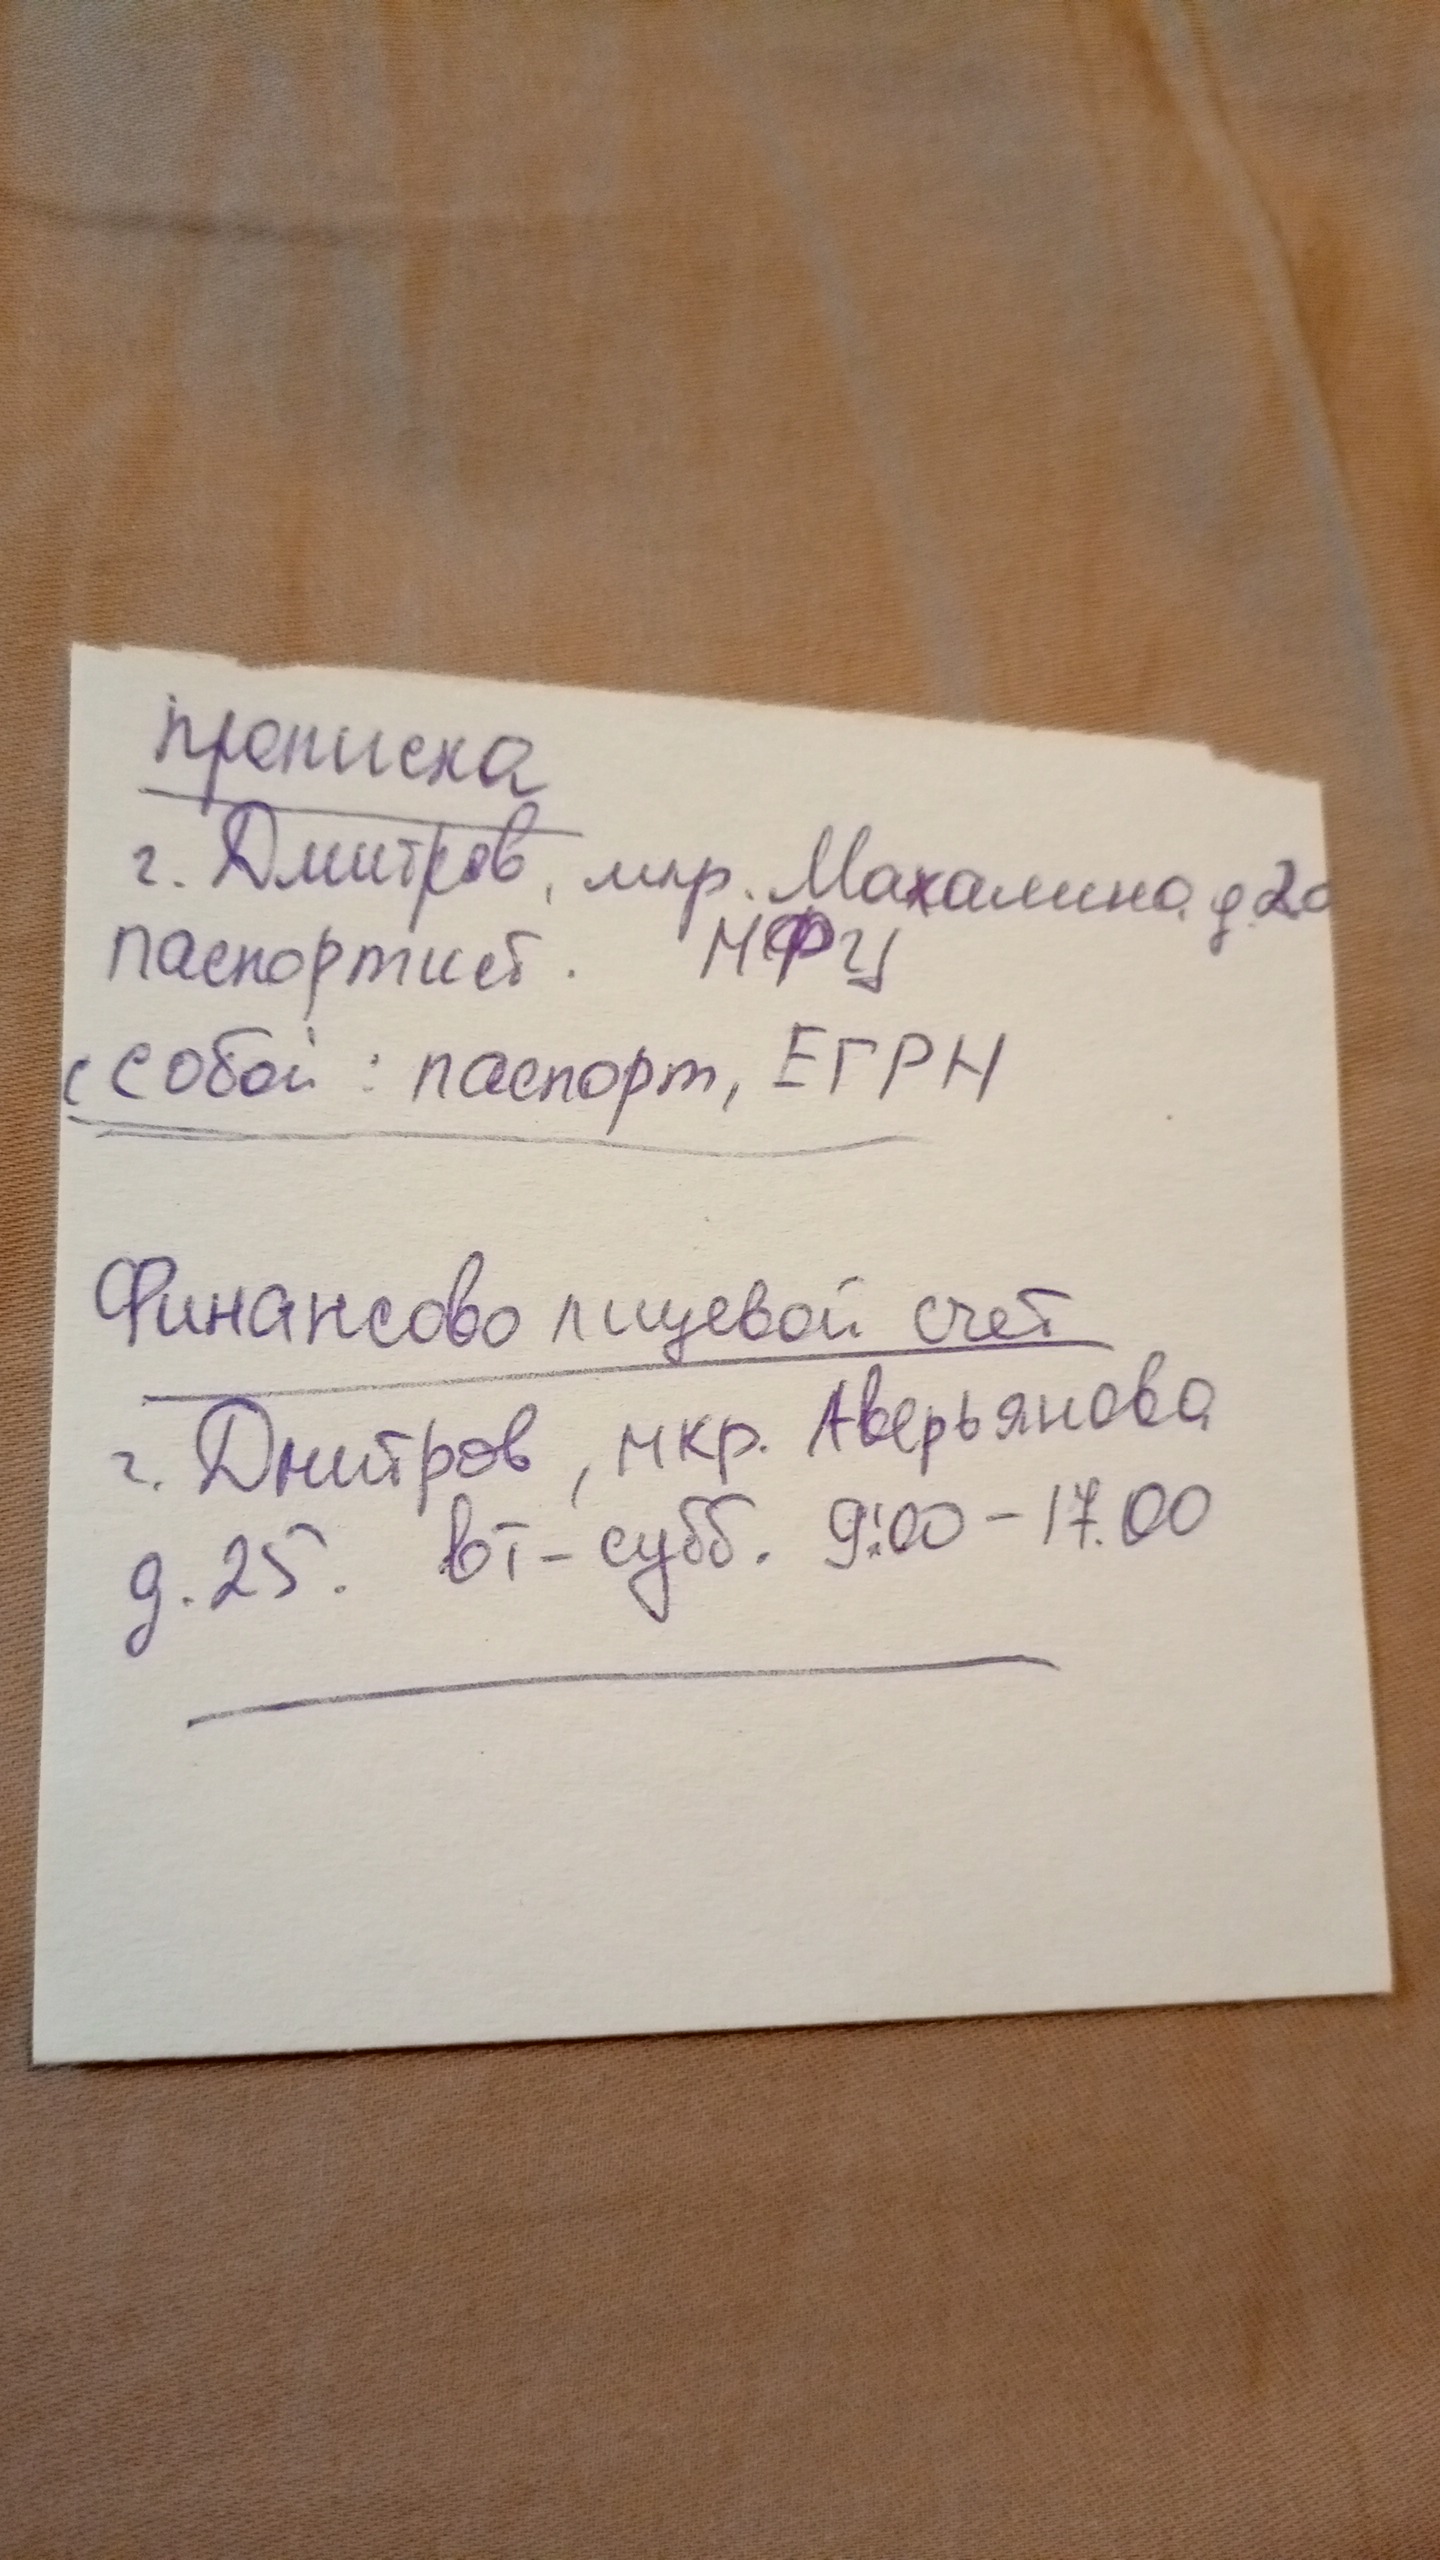 Прописка
г. Дмитров, мкр. Махалина д.20
паспортист. МФЦ
с собой: паспорт, ЕГРН
Финансово лицевой счет
г. Дмитров, мкр. Аверьянова
д. 25. вт-субб. 9:00-17.00